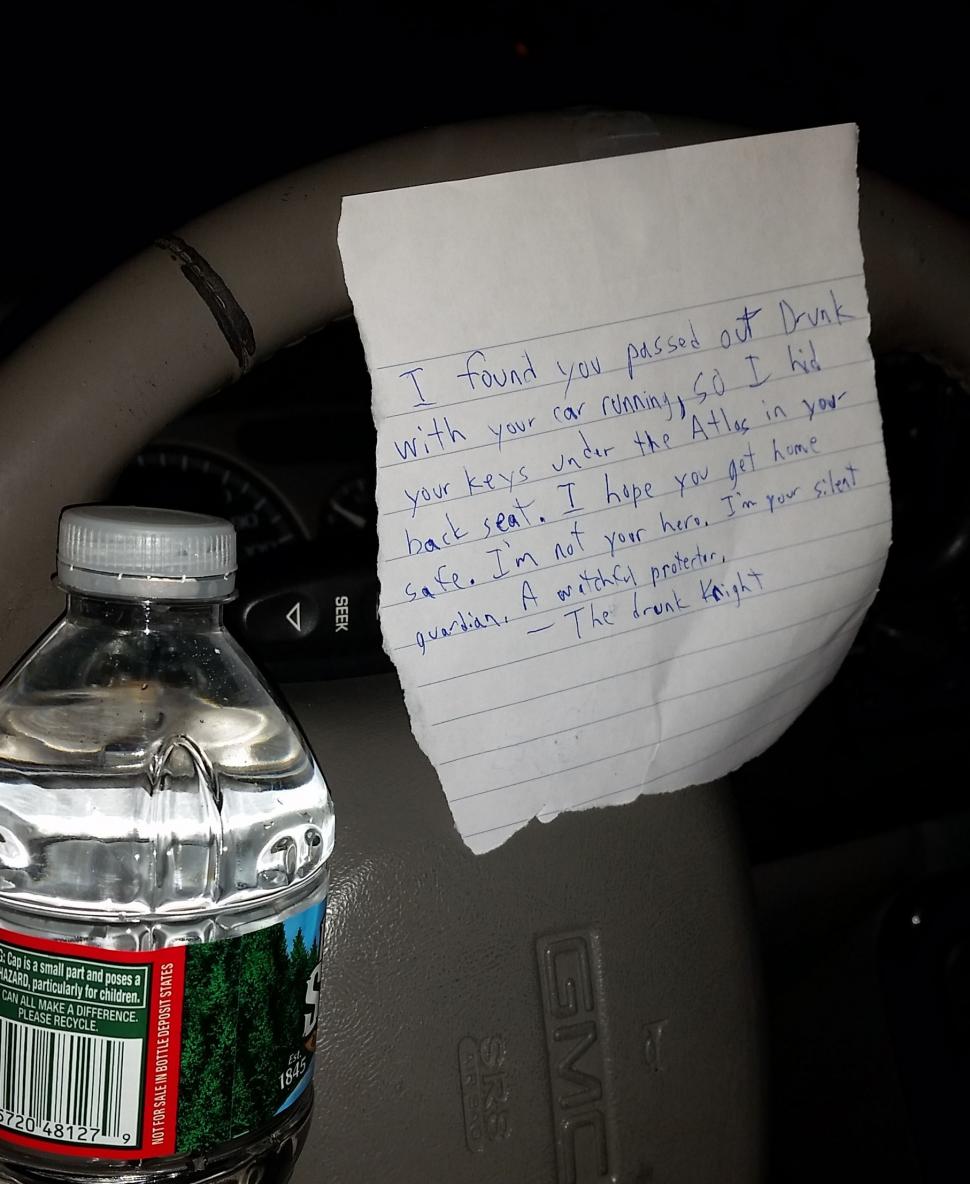 I found you passed out Drunk
with your car running, so I hid
your keys under the Atlas in your
back seat. I hope you get home
safe. I'm not your hero. I'm your silent
guardian. A watchful protector.
— The drunk Knight
SEEK
GMC
SRS
G: Cap is a small part and poses a
HAZARD, particularly for children.
CAN ALL MAKE A DIFFERENCE.
PLEASE RECYCLE.
NOT FOR SALE IN BOTTLE DEPOSIT STATES
Est.
1845
5720 48127 9